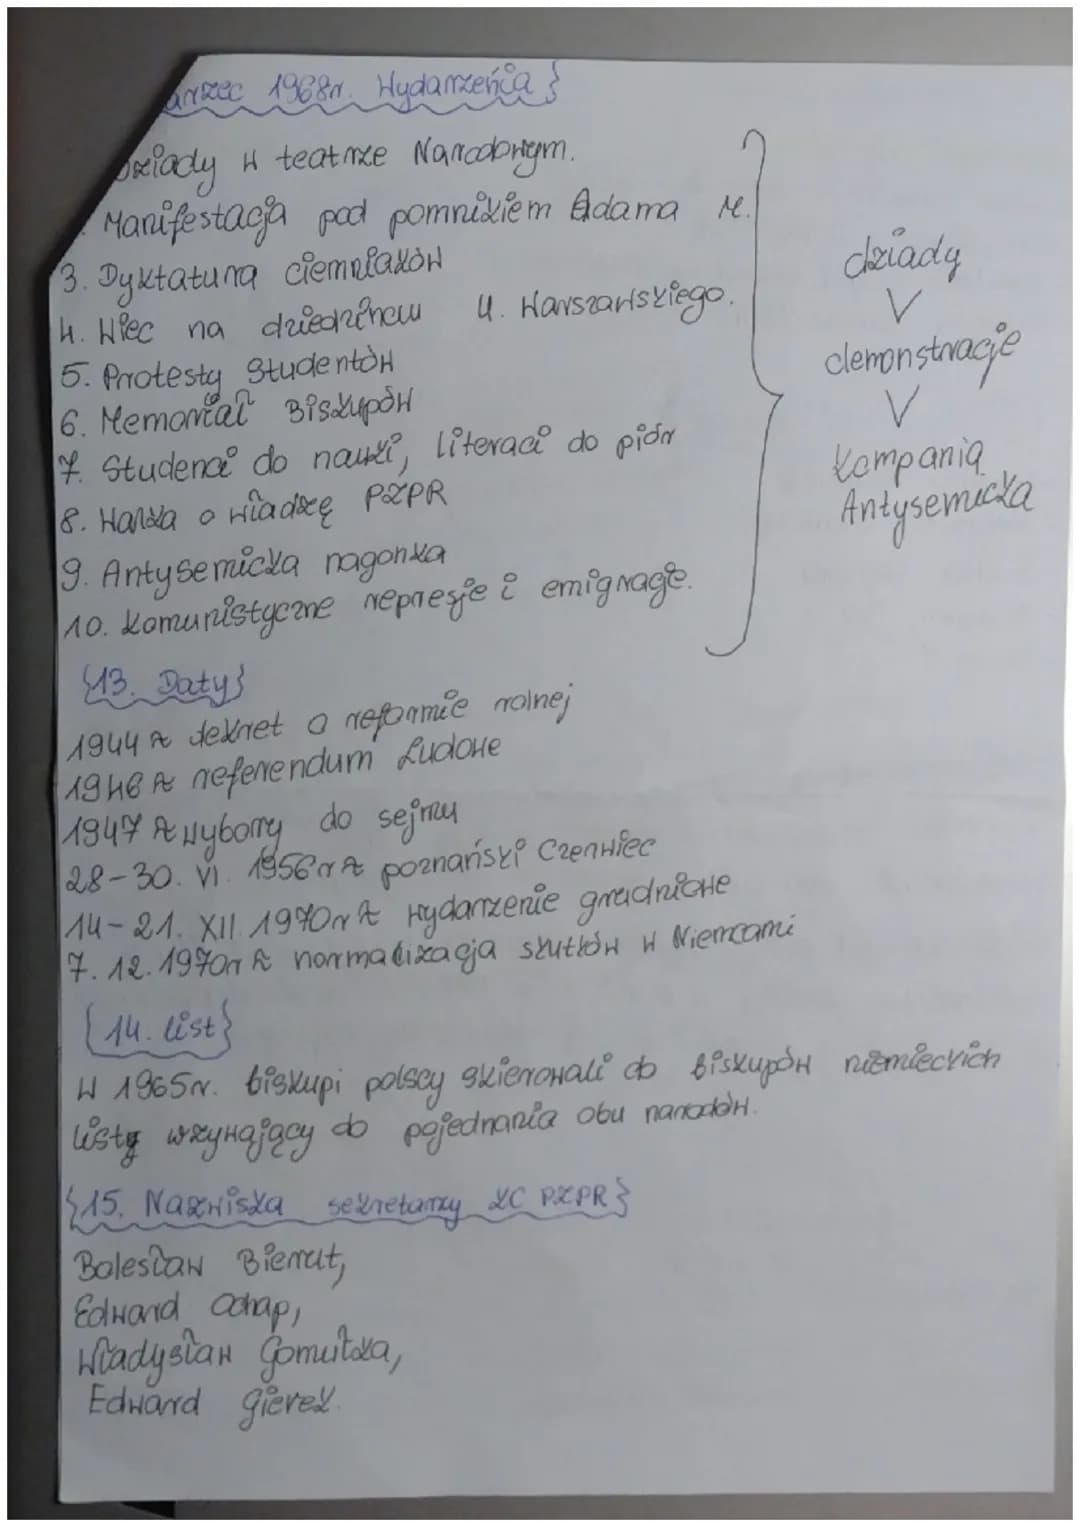 arzec 1968r. Wydarzenia }
Dziady w teatrze Narodowym.
Manifestacja pod pomnikiem Adama M.
3. Dyktatura ciemniaków
4. Wiec na dziedzińcu U. Warszawskiego.
5. Protesty studentów
6. Memoriał Biskupów
7. Studenci do nauki, literaci do piór
8. Walka o władzę PZPR
9. Antysemicka nagonka
10. komunistyczne represje i emigracje.
dziady
V
demonstracje
V
kampania
Antysemicka
{13. Daty}
1944 → dekret o reformie rolnej
1946 → referendum Ludowe
1947 → wybory do sejmu
28-30. VI. 1956r → poznański Czerwiec
14-21. XII. 1970r → wydarzenie grudniowe
7. 12. 1970r → normalizacja skutków w Niemcami
{14. list}
W 1965r. biskupi polscy skierowali do Biskupów niemieckich
listy wzywający do pojednania obu narodów.
{15. Nazwiska sekretarzy KC PZPR}
Bolesław Bierut,
Edward Ochap,
Władysław Gomułka,
Edward gierek.